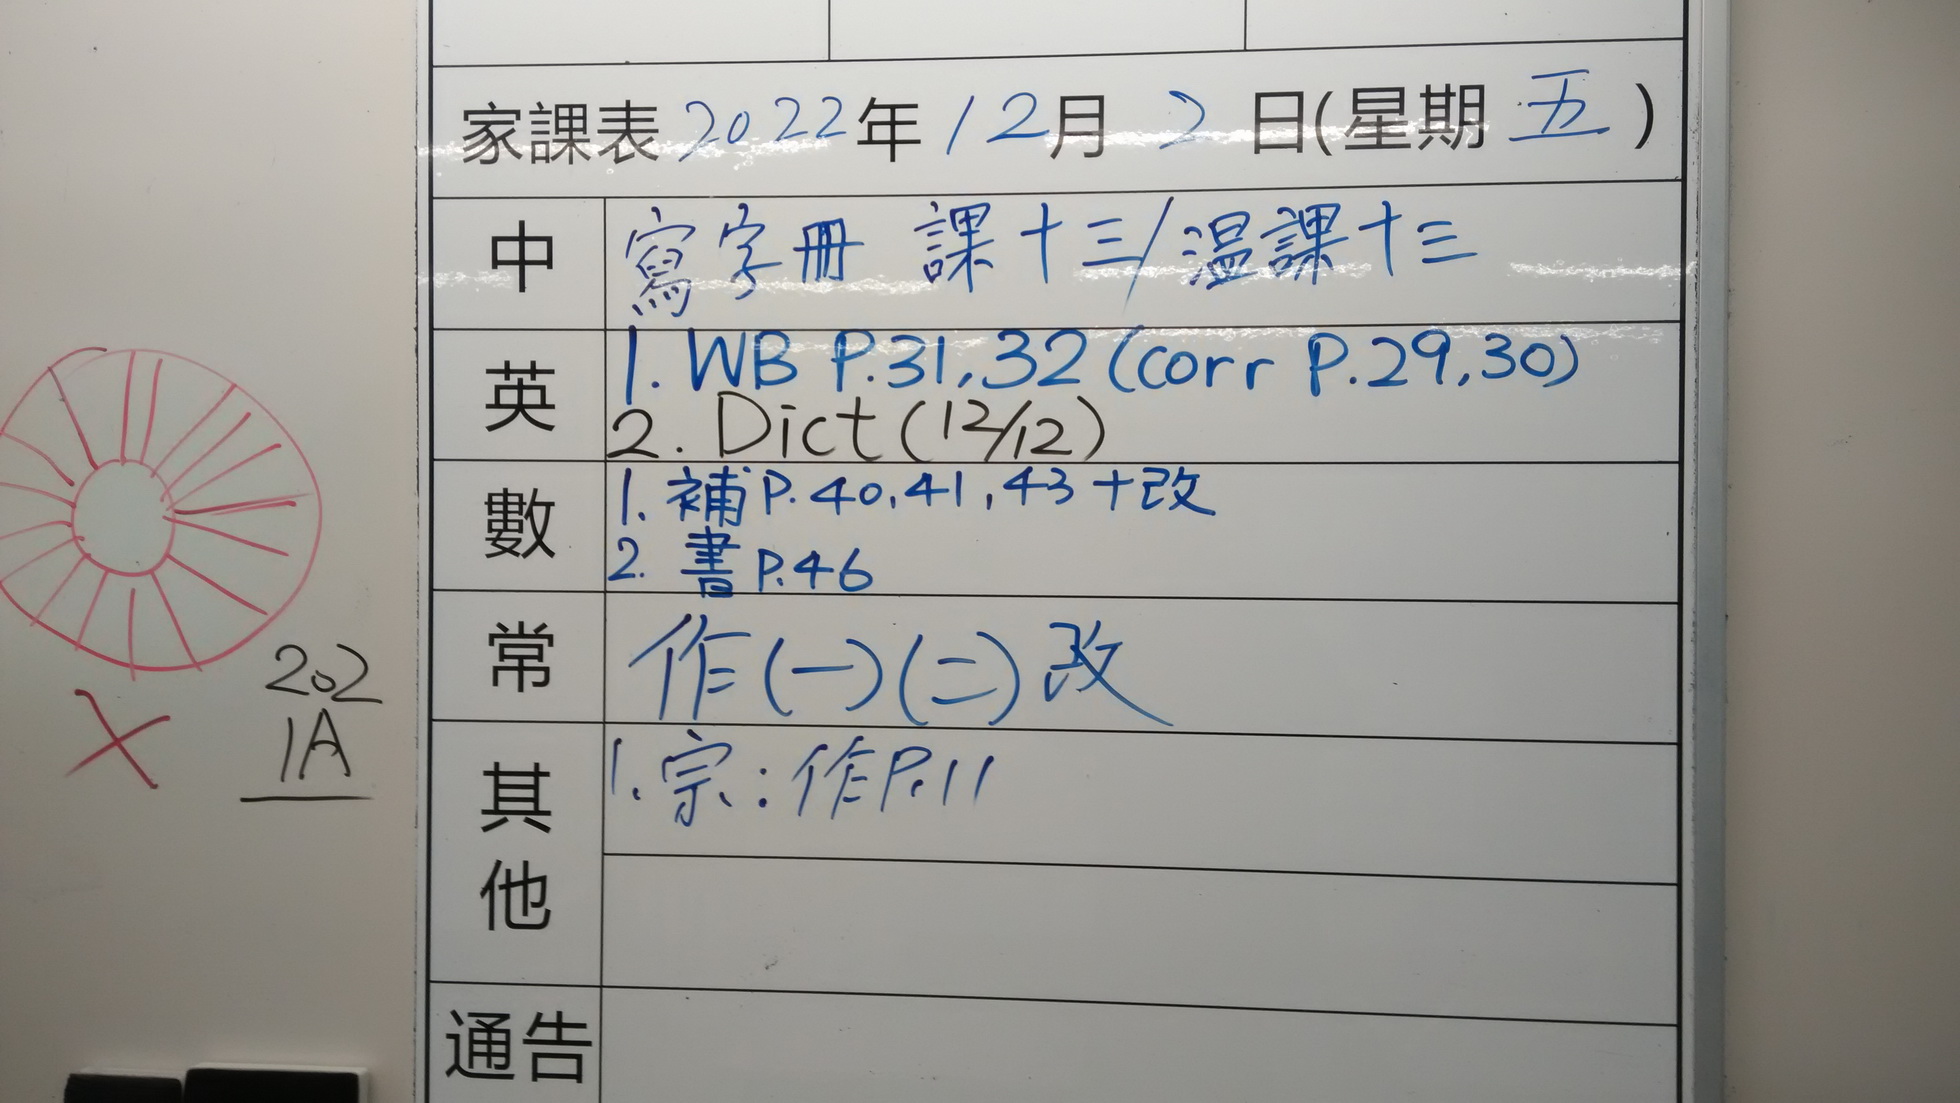 家課表 2022年 12月 2日(星期五)
中 寫字冊 課十三/溫課十三
英 1. WB P.31,32 (corr P.29,30)
2. Dict (12/12)
數 1. 補P.40,41,43+改
2. 書P.46
常 作(一)(二)改
其他 1. 宗:作P.11
通告
202
1A